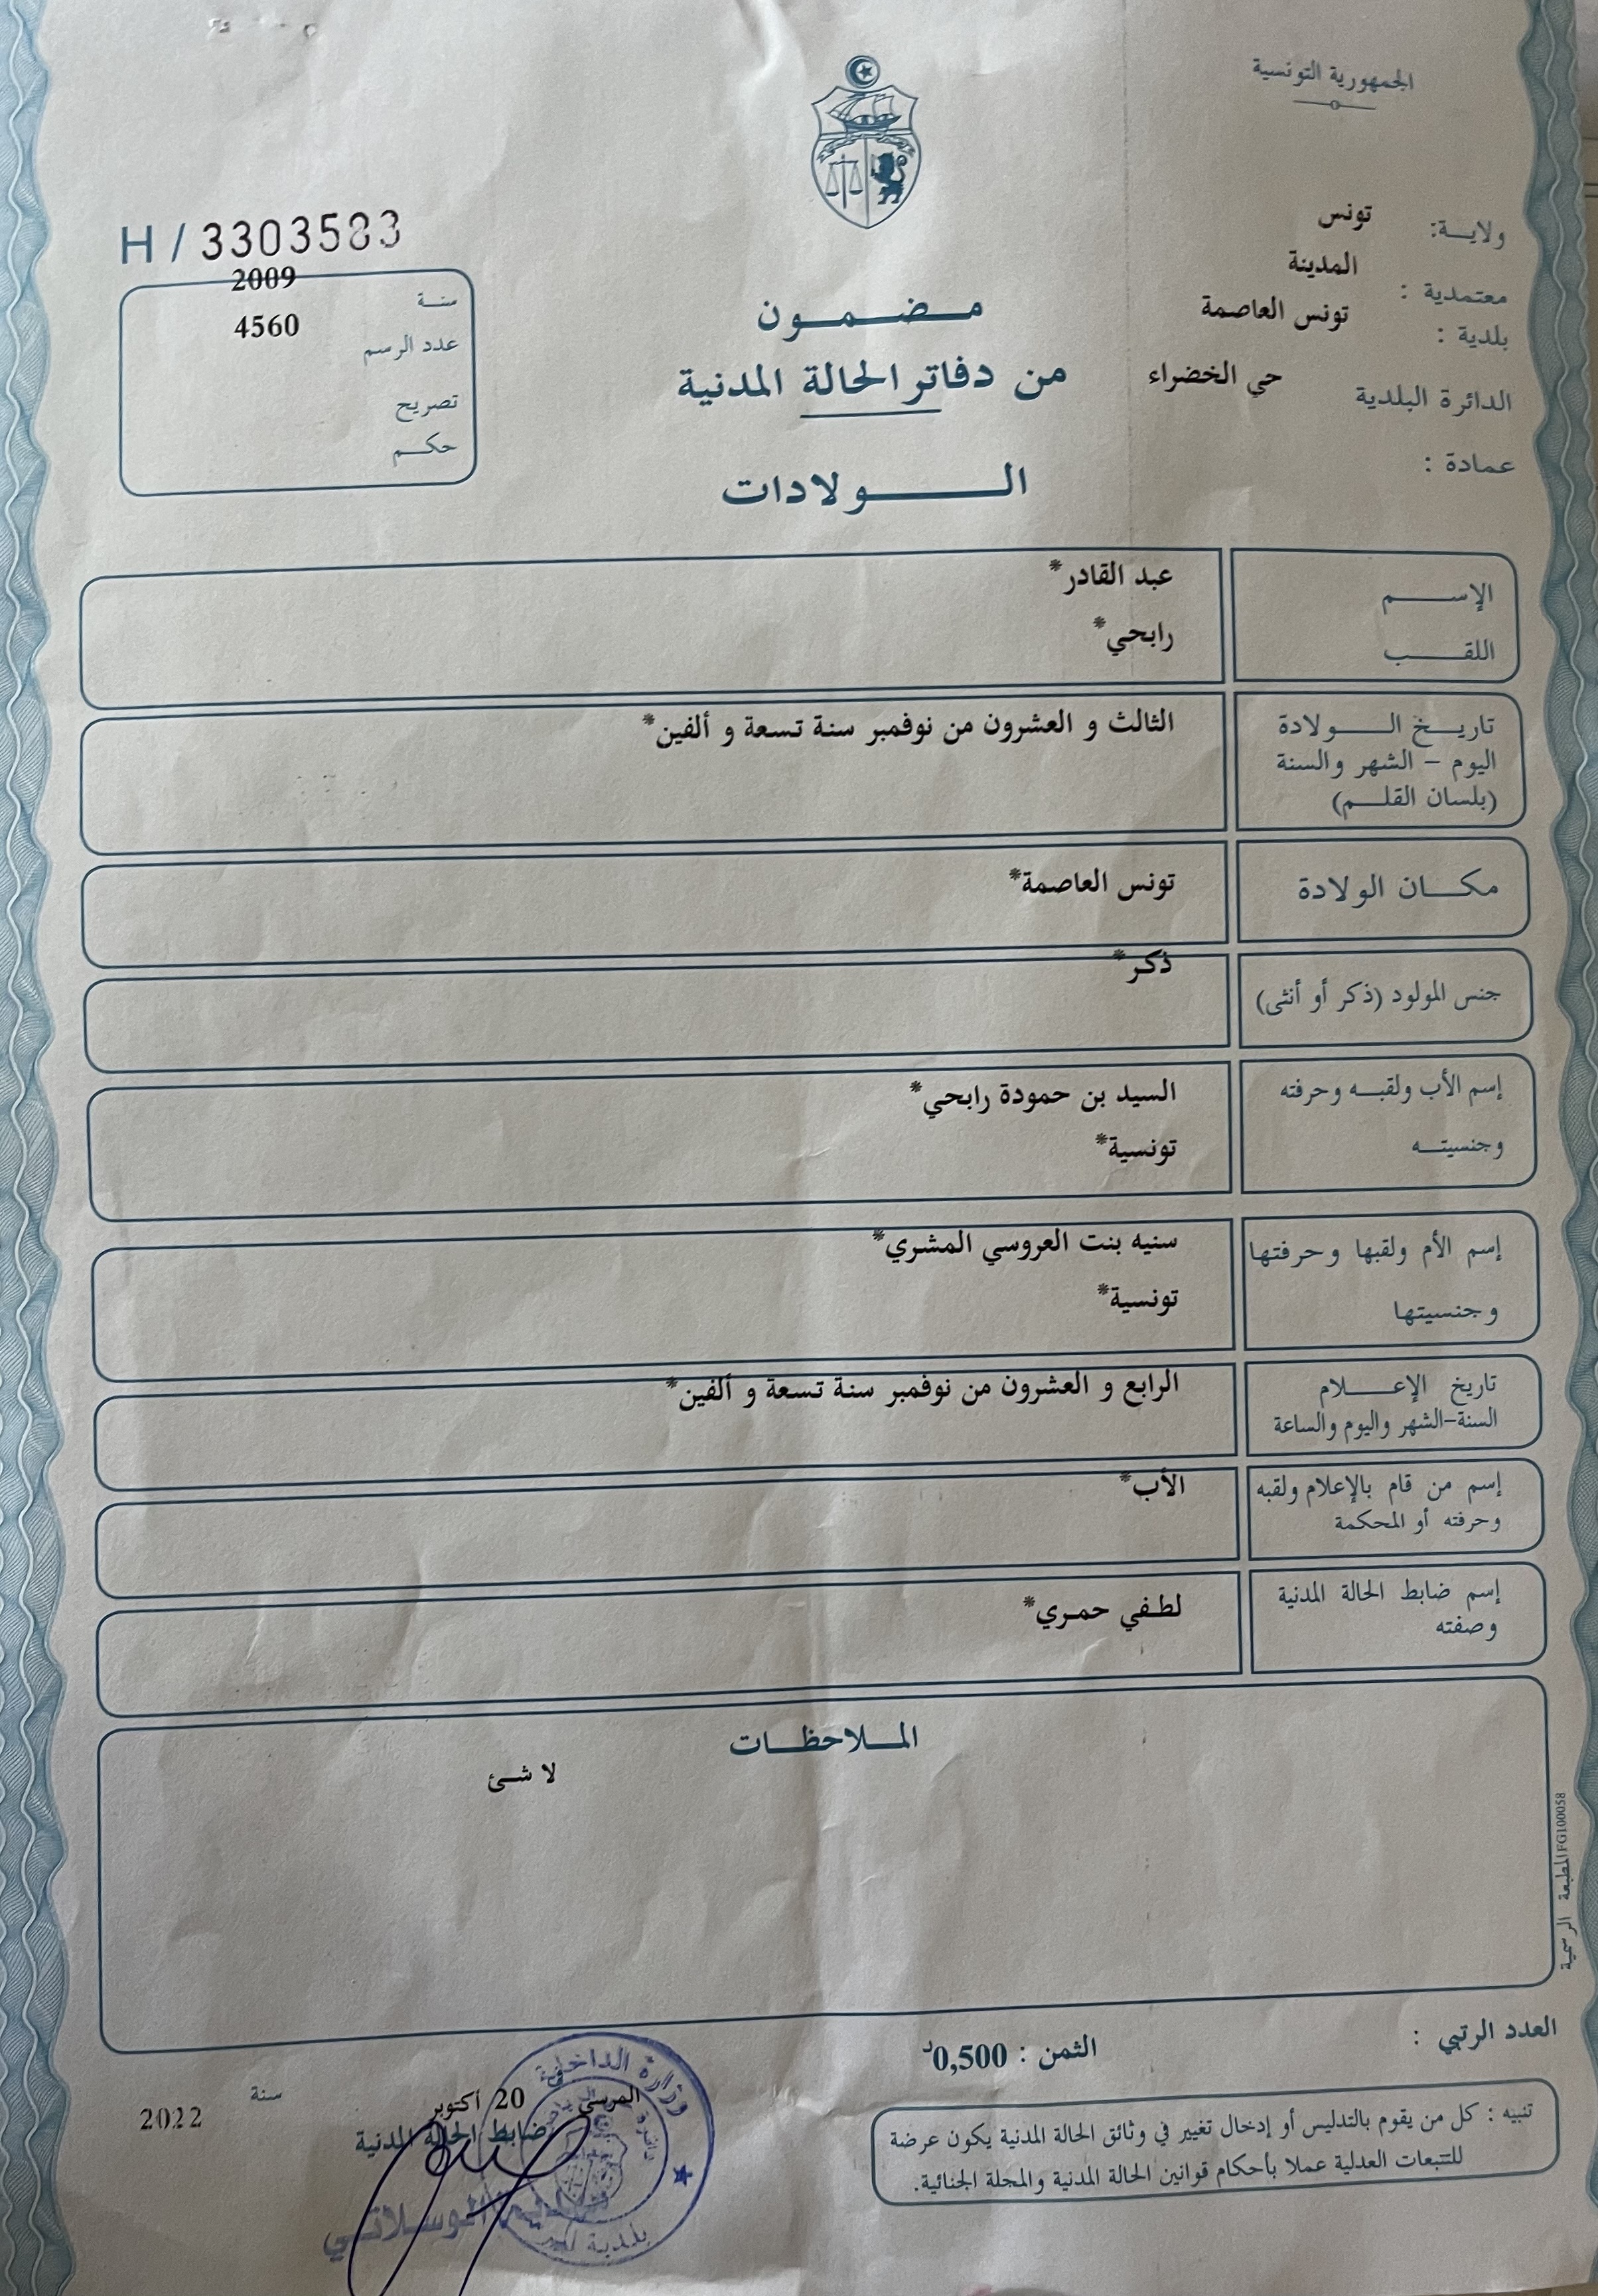 الجمهورية التونسية
ولايـــة: تونس
معتمدية : المدينة
بلدية : تونس العاصمة
الدائرة البلدية حي الخضراء
عمادة :
مـضـمـون
من دفاتر الحالة المدنية
الـولادات
H / 3303583
سنة 2009
عدد الرسم 4560
تصريح
حكم
الإسـم عبد القادر*
اللقـب رابحي*
تاريـخ الـولادة
اليوم - الشهر والسنة
(بلسان القلـم)
الثالث و العشرون من نوفمبر سنة تسعة و ألفين*
مكـان الولادة تونس العاصمة*
جنس المولود (ذكر أو أنثى) ذكر*
إسم الأب ولقبـه وحرفته السيد بن حمودة رابحي*
وجنسيتـه تونسية*
إسم الأم ولقبها وحرفتها سنيه بنت العروسي المشري*
وجنسيتها تونسية*
تاريخ الإعـلام الرابع و العشرون من نوفمبر سنة تسعة و ألفين*
السنة-الشهر واليوم والساعة
إسم من قام بالإعلام ولقبه الأب*
وحرفته أو المحكمة
إسم ضابط الحالة المدنية لطفي حمري*
وصفته
المـلاحظـات
لا شئ
المطبعة الرسمية FG100058
العدد الرتبي :
الثمن : 0,500د
تنبيه : كل من يقوم بالتدليس أو إدخال تغيير في وثائق الحالة المدنية يكون عرضة
للتتبعات العدلية عملا بأحكام قوانين الحالة المدنية والمجلة الجنائية.
المرسى في 20 أكتوبر سنة 2022
ضابط الحالة المدنية
وزارة الداخلية
بلدية